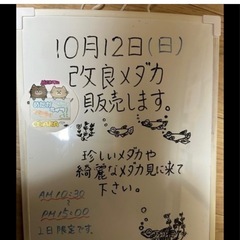 10月12日(日)
改良メダカ
販売します。
珍しいメダカや
綺麗なメダカ見に来て
下さい。
AM 10:30
PM 15:00
1日限定です。